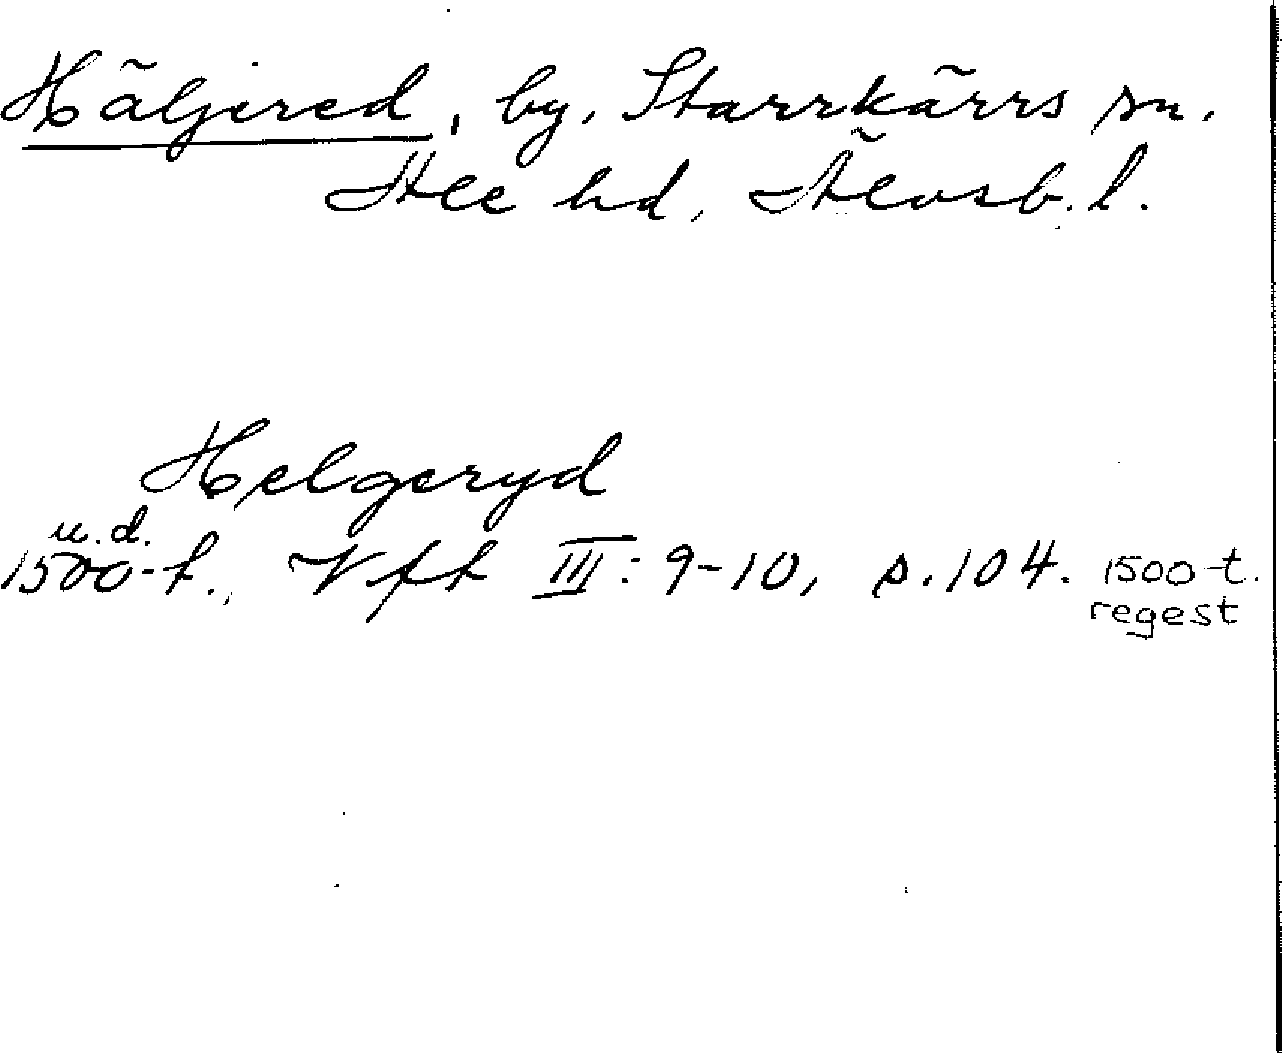 Häljered, by, Starrkärrs sn.
Ale hd, Älvsb. l.
Helgeryd
u.d.
1500-t., Vft III: 9-10, s. 104. 1500-t.
regest